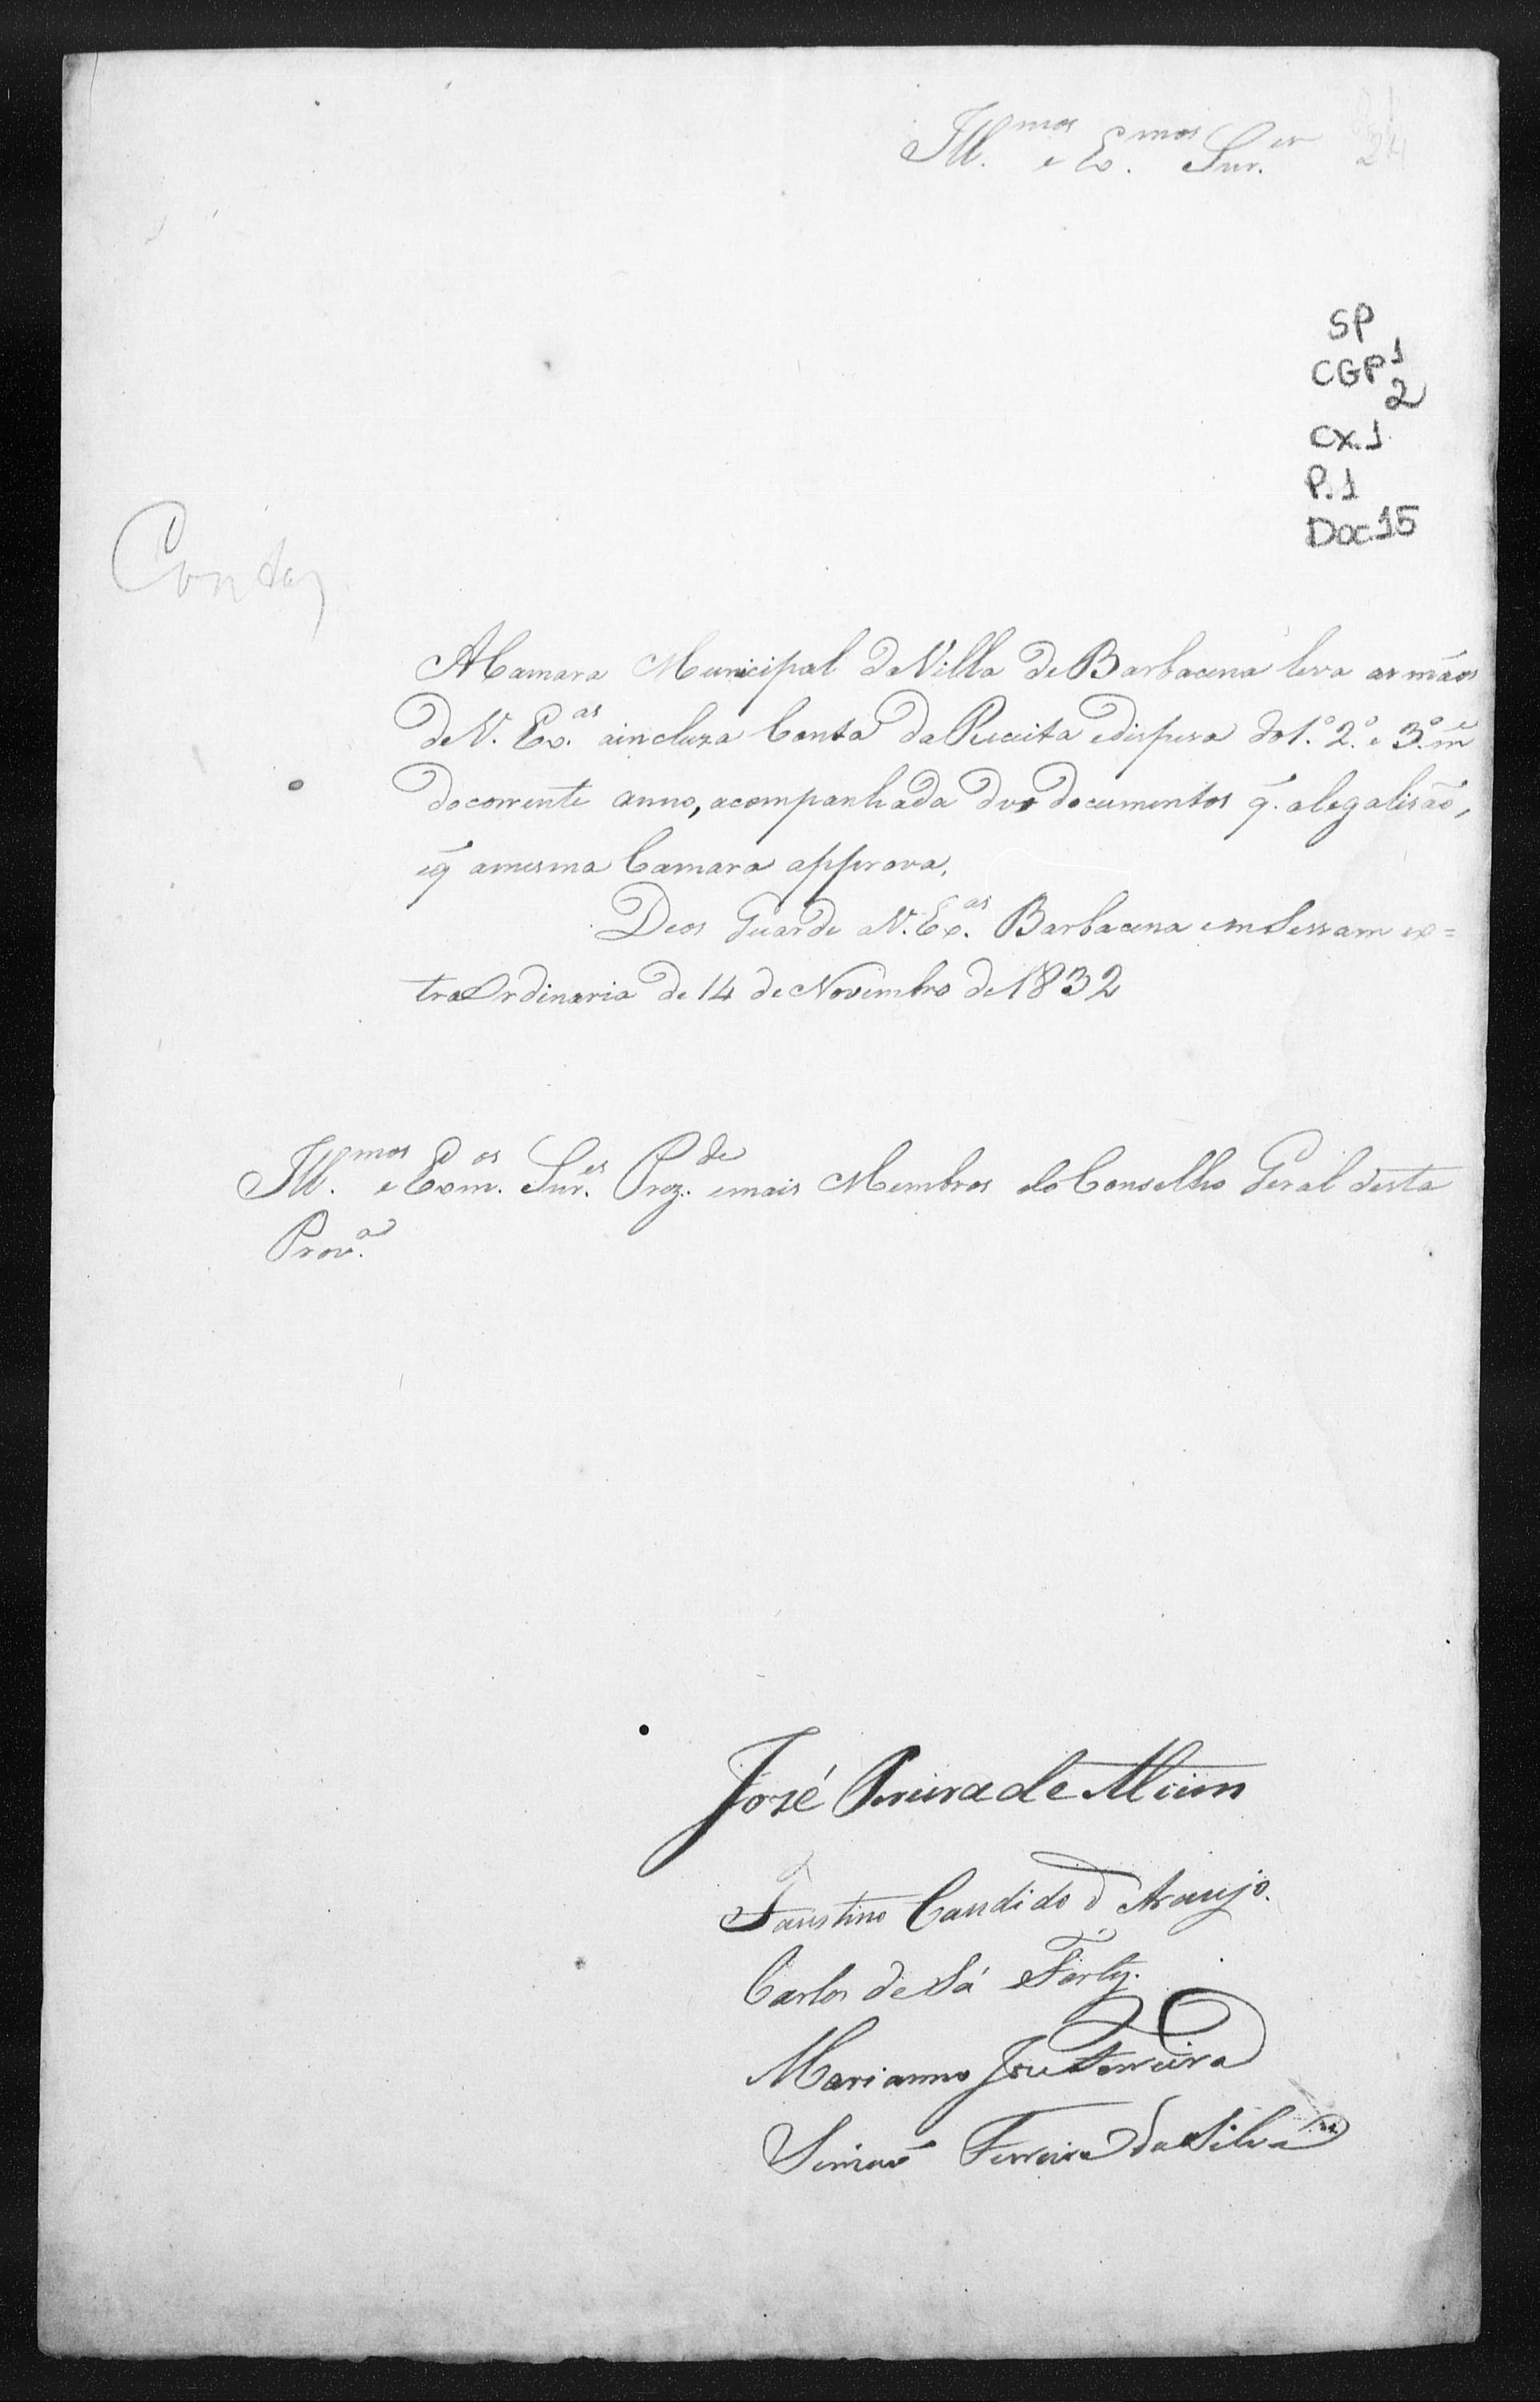 Ill.mos e Ex.mos Snr.es
24
SP
CGP 1
2
CX.1
P.1
Doc.15
Contas
A Camara Municipal da Villa de Barbacena leva as mãos
de V. Ex.as a incluza Conta da Receita e dispesa do 1.º 2.º e 3.º
do corrente anno, acompanhada dos documentos q̃. a legalisão,
e q̃ a mesma Camara approva.
Deos Guarde a V. Ex.as Barbacena em Sessam ex=
traOrdinaria de 14 de Novembro de 1832
Ill.mos e Exm.os Snr.es Prez.de e mais Membros do Conselho Geral desta
Prov.a
José Pereira de Alvim
Faustino Candido d'Araujo.
Carlos de Sá Fortes.
Marianno José Ferreira
Simaõ Ferreira da Silva